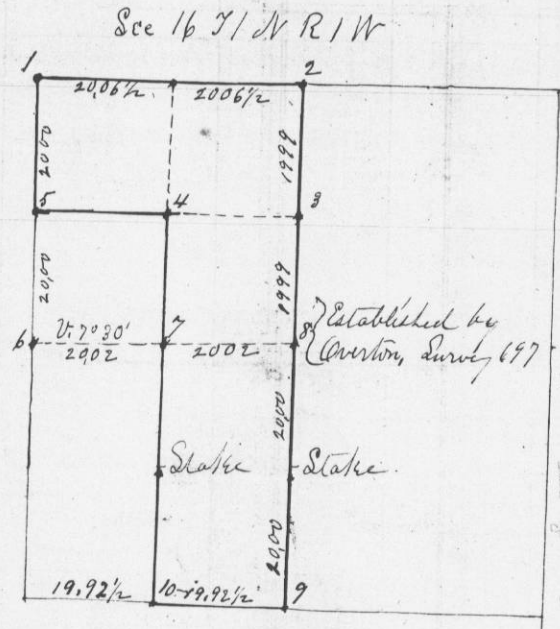 Sce 16 T1 N R1W
1
2
20,06½
2006½
20 00
1999
5
4
3
20,00
1999
6
V. 7° 30'
7
8
Established by
20,02
2002
Overton, Survey 697
20,00
Stake
Stake
20,00
19,92½
10
19,92½
9